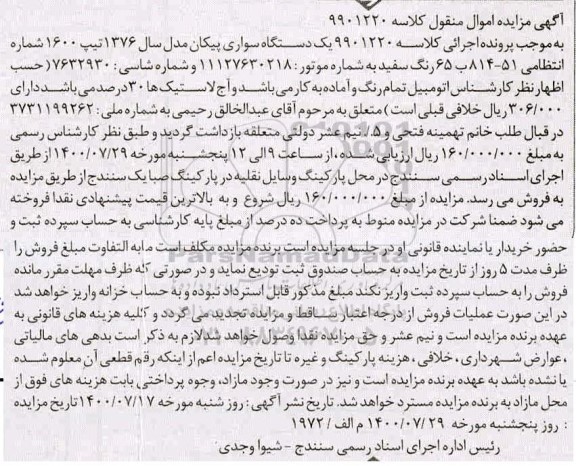 آگهی مزایده اموال منقول کلاسه ۹۹۰۱۲۲۰
به موجب پرونده اجرائی کلاسه ۹۹۰۱۲۲۰ یک دستگاه سواری پیکان مدل سال ۱۳۷۶ تیپ ۱۶۰۰ شماره
انتظامی ۵۱-۸۱۴ب ۶۵ رنگ سفید به شماره موتور : ۱۱۱۲۷۶۳۰۲۱۸ و شماره شاسی : ۷۶۳۲۹۳۰ ( حسب
اظهار نظر کارشناس اتومبیل تمام رنگ و آماده به کار می باشد و آج لاستیک ها ۳۰ درصد می باشد دارای
۳۰۶/۰۰۰ ریال خلافی قبلی است ) متعلق به مرحوم آقای عبدالخالق رحیمی به شماره ملی : ۳۷۳۱۱۹۹۲۶۲
در قبال طلب خانم تهمینه فتحی و ۵/. نیم عشر دولتی متعلقه بازداشت گردید و طبق نظر کارشناس رسمی
به مبلغ ۱۶۰/۰۰۰/۰۰۰ ریال ارزیابی شده ، از ساعت ۹ الی ۱۲ پنجشنبه مورخه ۱۴۰۰/۰۷/۲۹ از طریق
اجرای اسناد رسمی سنندج در محل پارکینگ وسایل نقلیه در پارکینگ صبا یک سنندج از طریق مزایده
به فروش می رسد. مزایده از مبلغ ۱۶۰/۰۰۰/۰۰۰ ریال شروع و به بالاترین قیمت پیشنهادی نقدا فروخته
می شود ضمنا شرکت در مزایده منوط به پرداخت ده درصد از مبلغ پایه کارشناسی به حساب سپرده ثبت و
حضور خریدار یا نماینده قانونی او در جلسه مزایده است برنده مزایده مکلف است مابه التفاوت مبلغ فروش را
ظرف مدت ۵ روز از تاریخ مزایده به حساب صندوق ثبت تودیع نماید و در صورتی که ظرف مهلت مقرر مانده
فروش را به حساب سپرده ثبت واریز نکند مبلغ مذکور قابل استرداد نبوده و به حساب خزانه واریز خواهد شد
در این صورت عملیات فروش از درجه اعتبار ساقط و مزایده تجدید می گردد و کلیه هزینه های قانونی به
عهده برنده مزایده است و نیم عشر و حق مزایده نقدا وصول خواهد شد لازم به ذکر است بدهی های مالیاتی
، عوارض شهرداری ، خلافی ، هزینه پارکینگ و غیره تا تاریخ مزایده اعم از اینکه رقم قطعی آن معلوم شده
یا نشده باشد به عهده برنده مزایده است و نیز در صورت وجود مازاد، وجوه پرداختی بابت هزینه های فوق از
محل مازاد به برنده مزایده مسترد خواهد شد. تاریخ نشر آگهی : روز شنبه مورخه ۱۴۰۰/۰۷/۱۷ تاریخ مزایده
: روز پنجشنبه مورخه ۱۴۰۰/۰۷/۲۹ م الف / ۱۹۷۲
رئیس اداره اجرای اسناد رسمی سنندج - شیوا وجدی